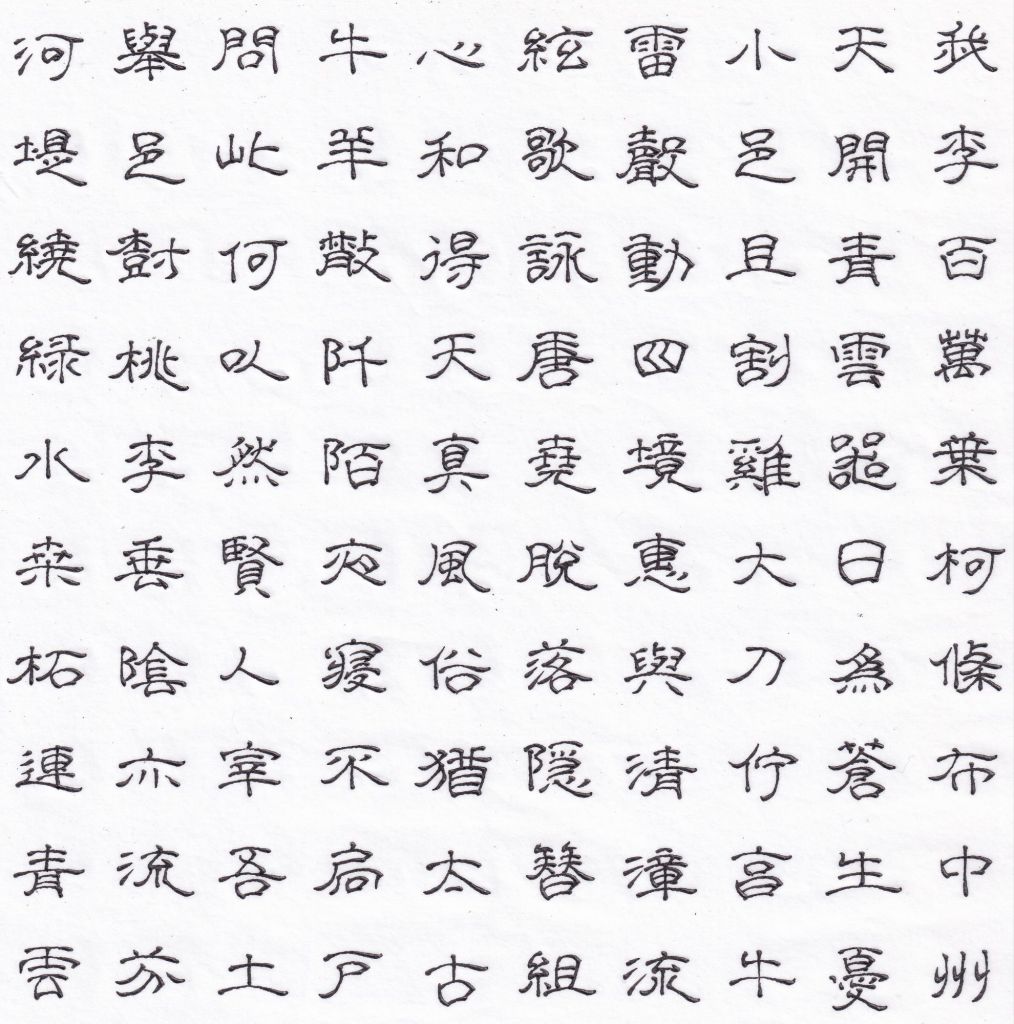 我李百萬葉柯條布中州
天開青雲器日為蒼生憂
小邑且割雞大刀佇亯牛
雷聲動四境惠與清漳流
絃歌詠唐堯脫落隱簪組
心和得天真風俗猶太古
牛羊散阡陌夜寢不扃戶
問此何以然賢人宰吾土
舉邑樹桃李垂陰亦流芬
河堤繞綠水桑柘連青雲